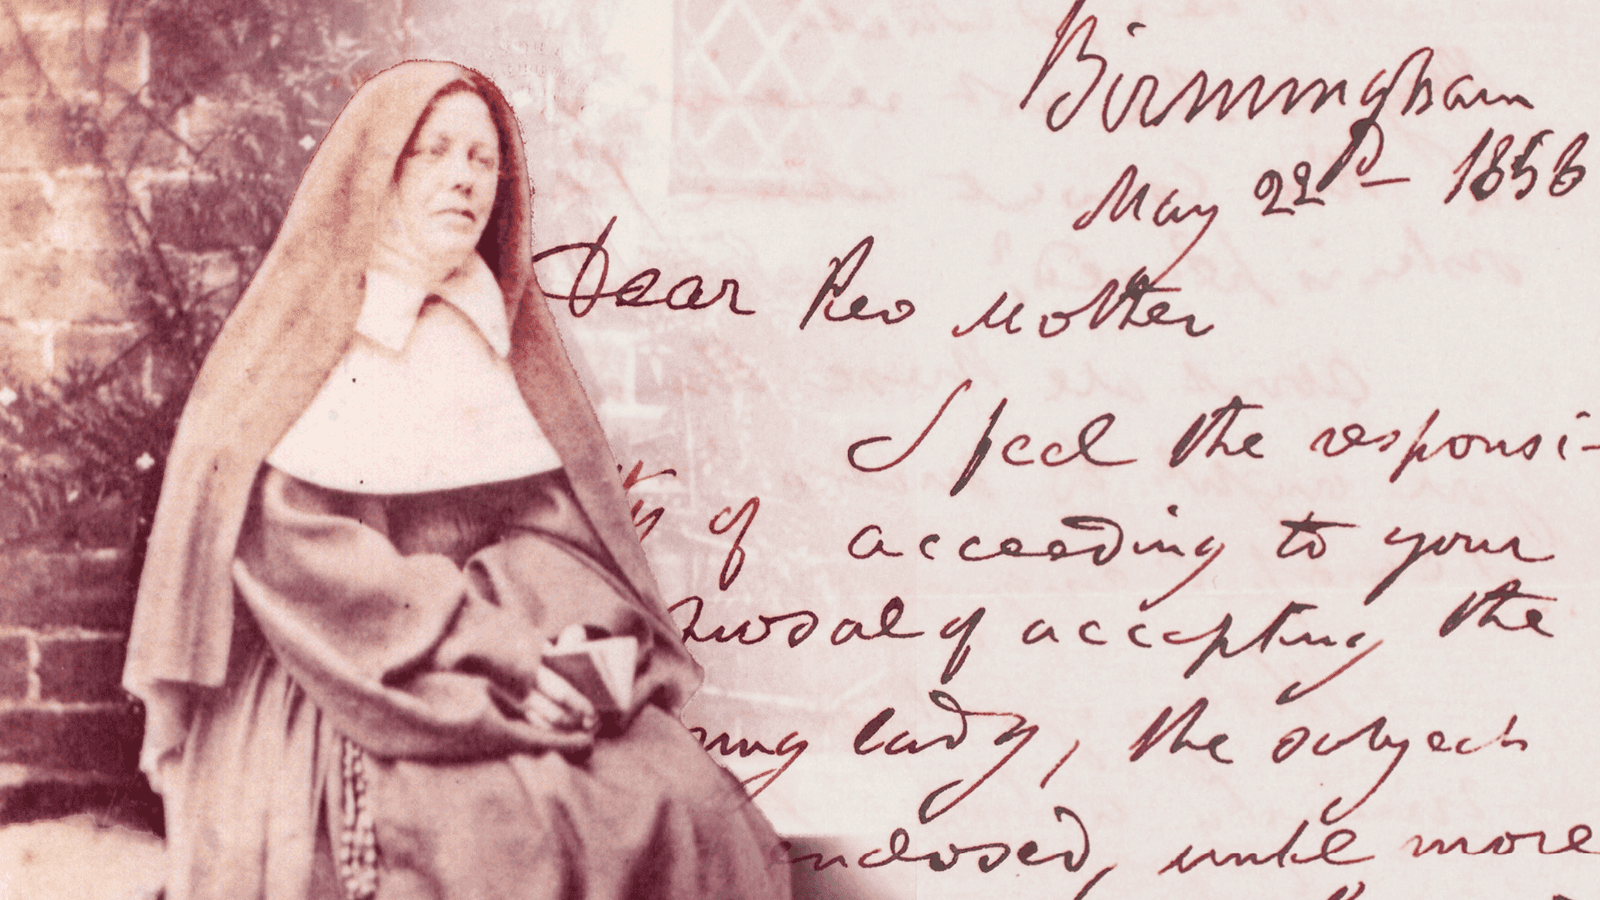 Birmingham
May 22d 1856
Dear Rev Mother
I feel the responsi-
ty of acceeding to your
posal of accepting the
ung lady, the subject
enclosed, until more